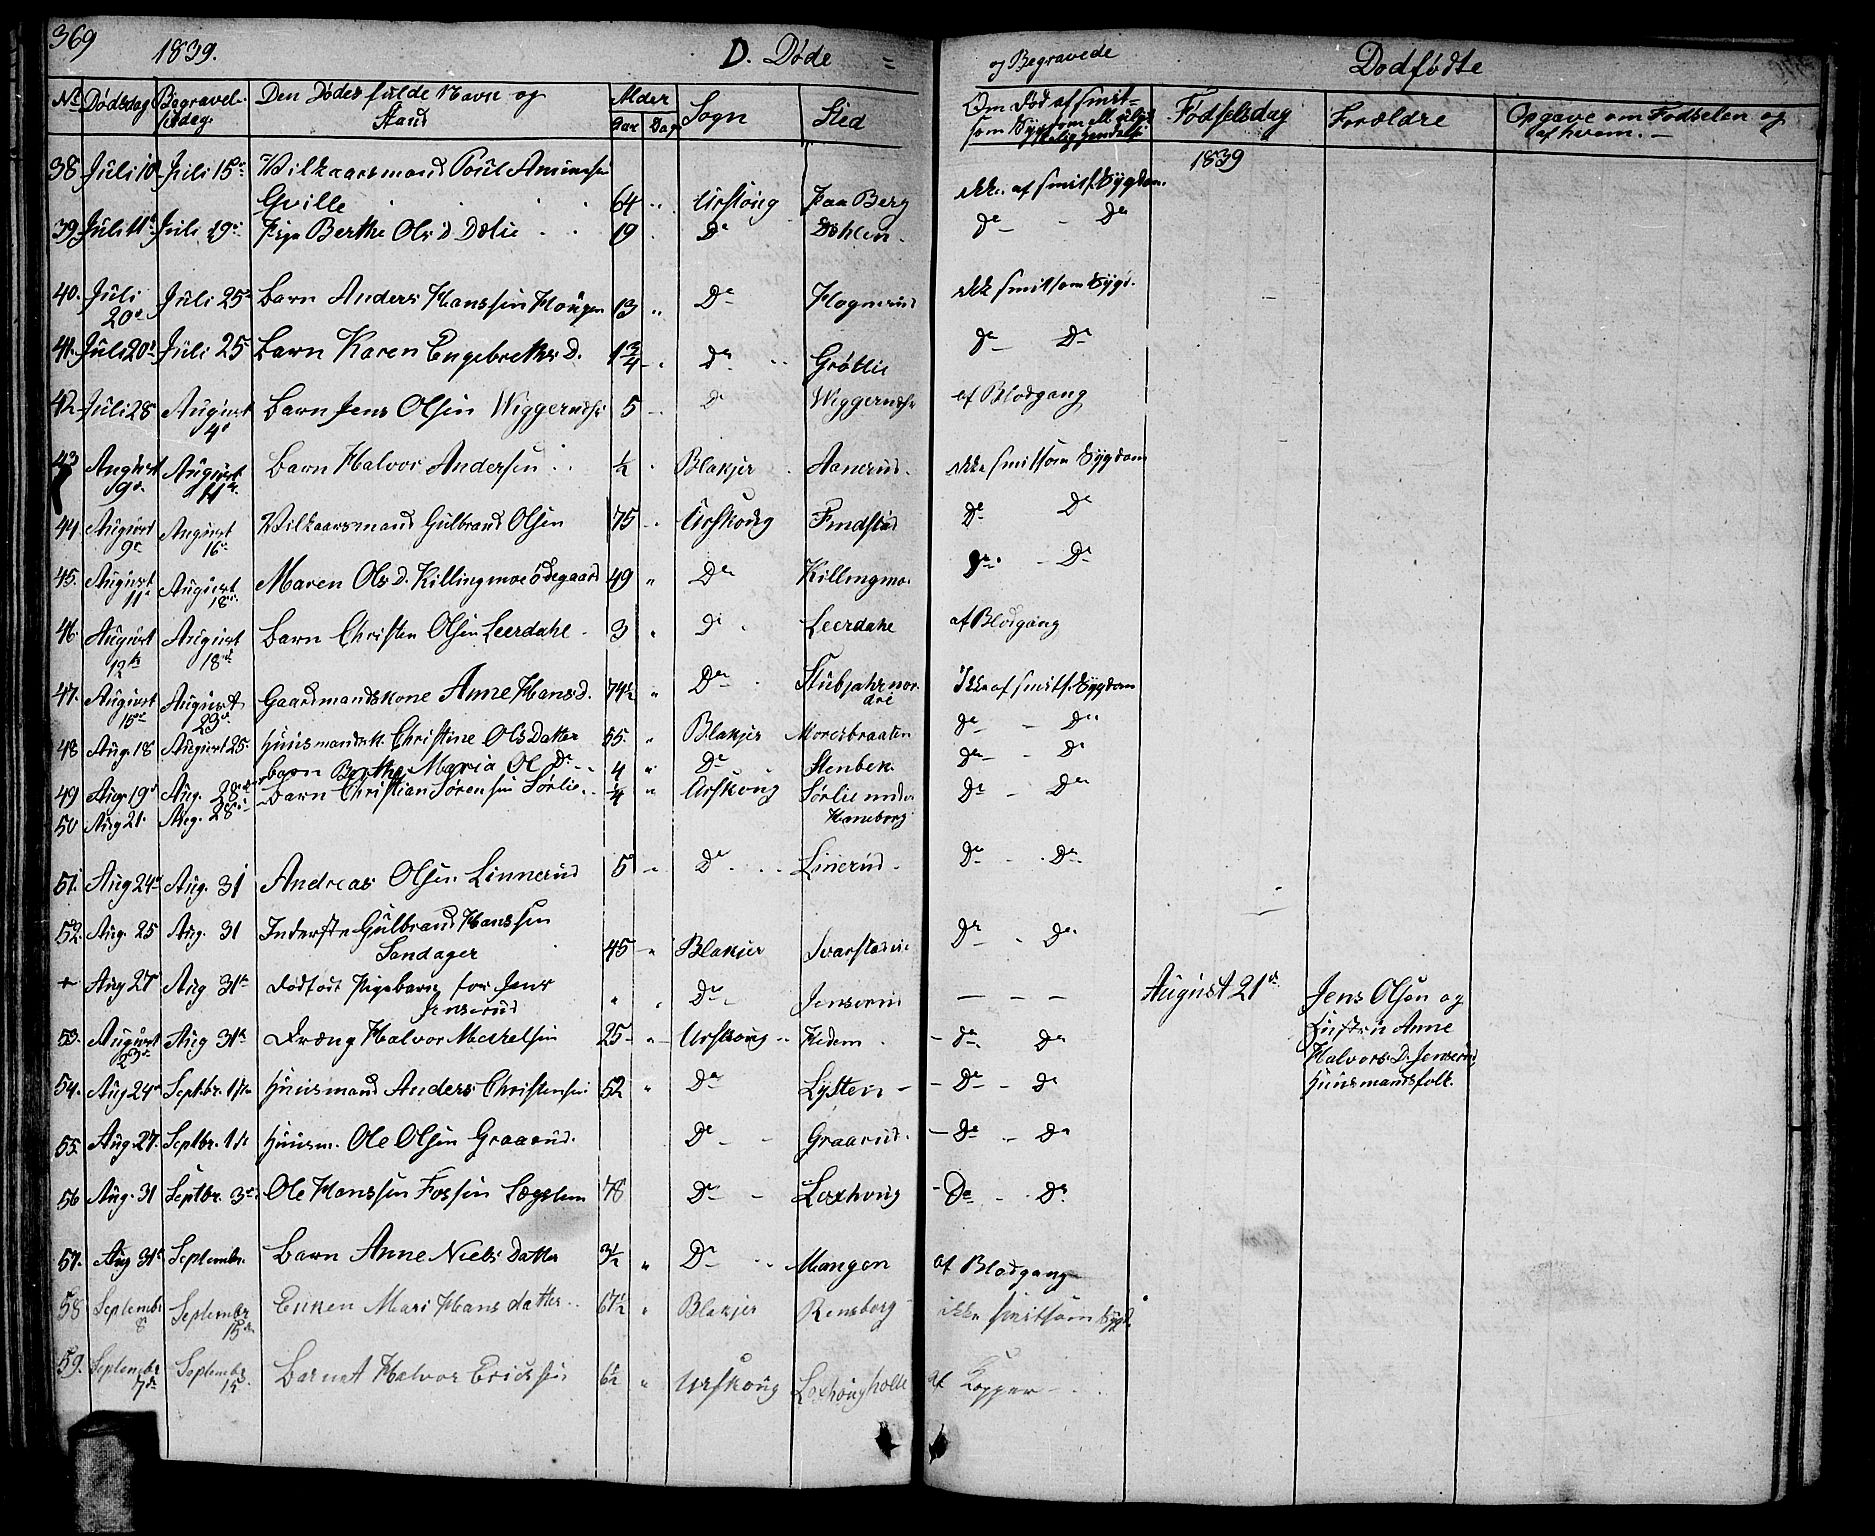 369 1839. D. Døde = og Begravede Dodfødte
No Dødsdag Begravelsesdag Den Dødes fulde Navn og Stand Alder Aar Dag Sogn Sted Om Død af smitsom Sygdom Fødselsdag Forældre Opgave om Fødselen og af hvem. —
1839
38. Juli 10 Juli 15de Vilkaarsmand Poul Amundsen
Gville 64 " Urskoug Paa Berg ikke af smits. Sygdom.
39. Juli 11te Juli 19de Pige Berthe Ols D. Dælie 19 " Do Dæhlen Do — Do
40. Juli 20de Juli 25de Barn Anders Hanssen Hougen 13 " Do Hognerud ikke smitsom Sygd.
41. Juli 20de Juli 25 Barn Karen Engebreths D. 1 3/4 " Do Grøtlie Do — Do
42. Juli 28 August 4de Barn Jens Olsen 5 " Do af Blodgang
43 August 9de August 11te Barn Halvor Andersen 1/2 " Blakjer Aanerud ikke smitsom Sygdom
44 August 9de August 16de Vilkaarsmand Gulbrand Olsen 75 " Urskoug Findstad Do Do
45. August 11te August 18de Maren Ols D. Killingmoe Ødegaard 49 " Do Killingmo Do — Do
46. August 12te August 18de Barn Christen Olsen Leerdahl 3 " Do Leerdahl af Blodgang
47. August 15de August 23de Gaardmandskone Anne Hansd. 74 1/2 " Do Stubjahr nordre Ikke af smits. Sygdom
48 Aug. 18 August 25. Huusmandsk. Christine Ols Datter 55. " Blakjer Moresbraaten Do — Do
49 Aug. 19de Aug. 28de Barn Berthe Maria Ol D. 4 " Do Stenbek Do — Do
50 Aug 21. Aug. 28de Barn Christian Sørensen Sørlie 1/4 " Urskoug Sørlie under Haneborg Do — Do
51. Aug 24de Aug. 31 Andreas Olsen Linnerud 5 " Do Linerud Do — Do
52. Aug. 25 Aug. 31 Inderste Gulbrand Hanssen
Sandager 45 " Blakjer Do — Do
+ Aug 21 Aug 31te Dødfødt Pigebarn for Jens
Jenserud " " Do Jenserud — — — August 21de Jens Olsen og
Hustru Anne
Halvors D. Jenserud
Huusmandsfolk.
53. August 23de Aug 31te Dreng Halvor Mechelsen 25 " Urskoug Do Do
54. Aug 24de Septbr. 1ste Huusmand Anders Christensen 52 " Do Lysten Do — Do
55. Aug. 27. Septbr. 1ste Huusm. Ole Olsen Graarud. Do Graarud Do — Do
56 Aug. 31 Septbr. 3de Ole Hanssen Fossen Lægslem 78 Do Loxhoug Do — Do
57. Aug 31te Septembr. Barn Anne Niels Datter 3 1/2 " Do Mangen af Blodgang
58 Septembr 8 Septembr 15de Enken Mari Hans datter 67 1/2 " Blakjer Rensborg ikke smitsom Sygd.
59. Septembr 7de Septembr 15. Barnet Halvor Ericksen 6 1/2 " Urskoug af Kopper